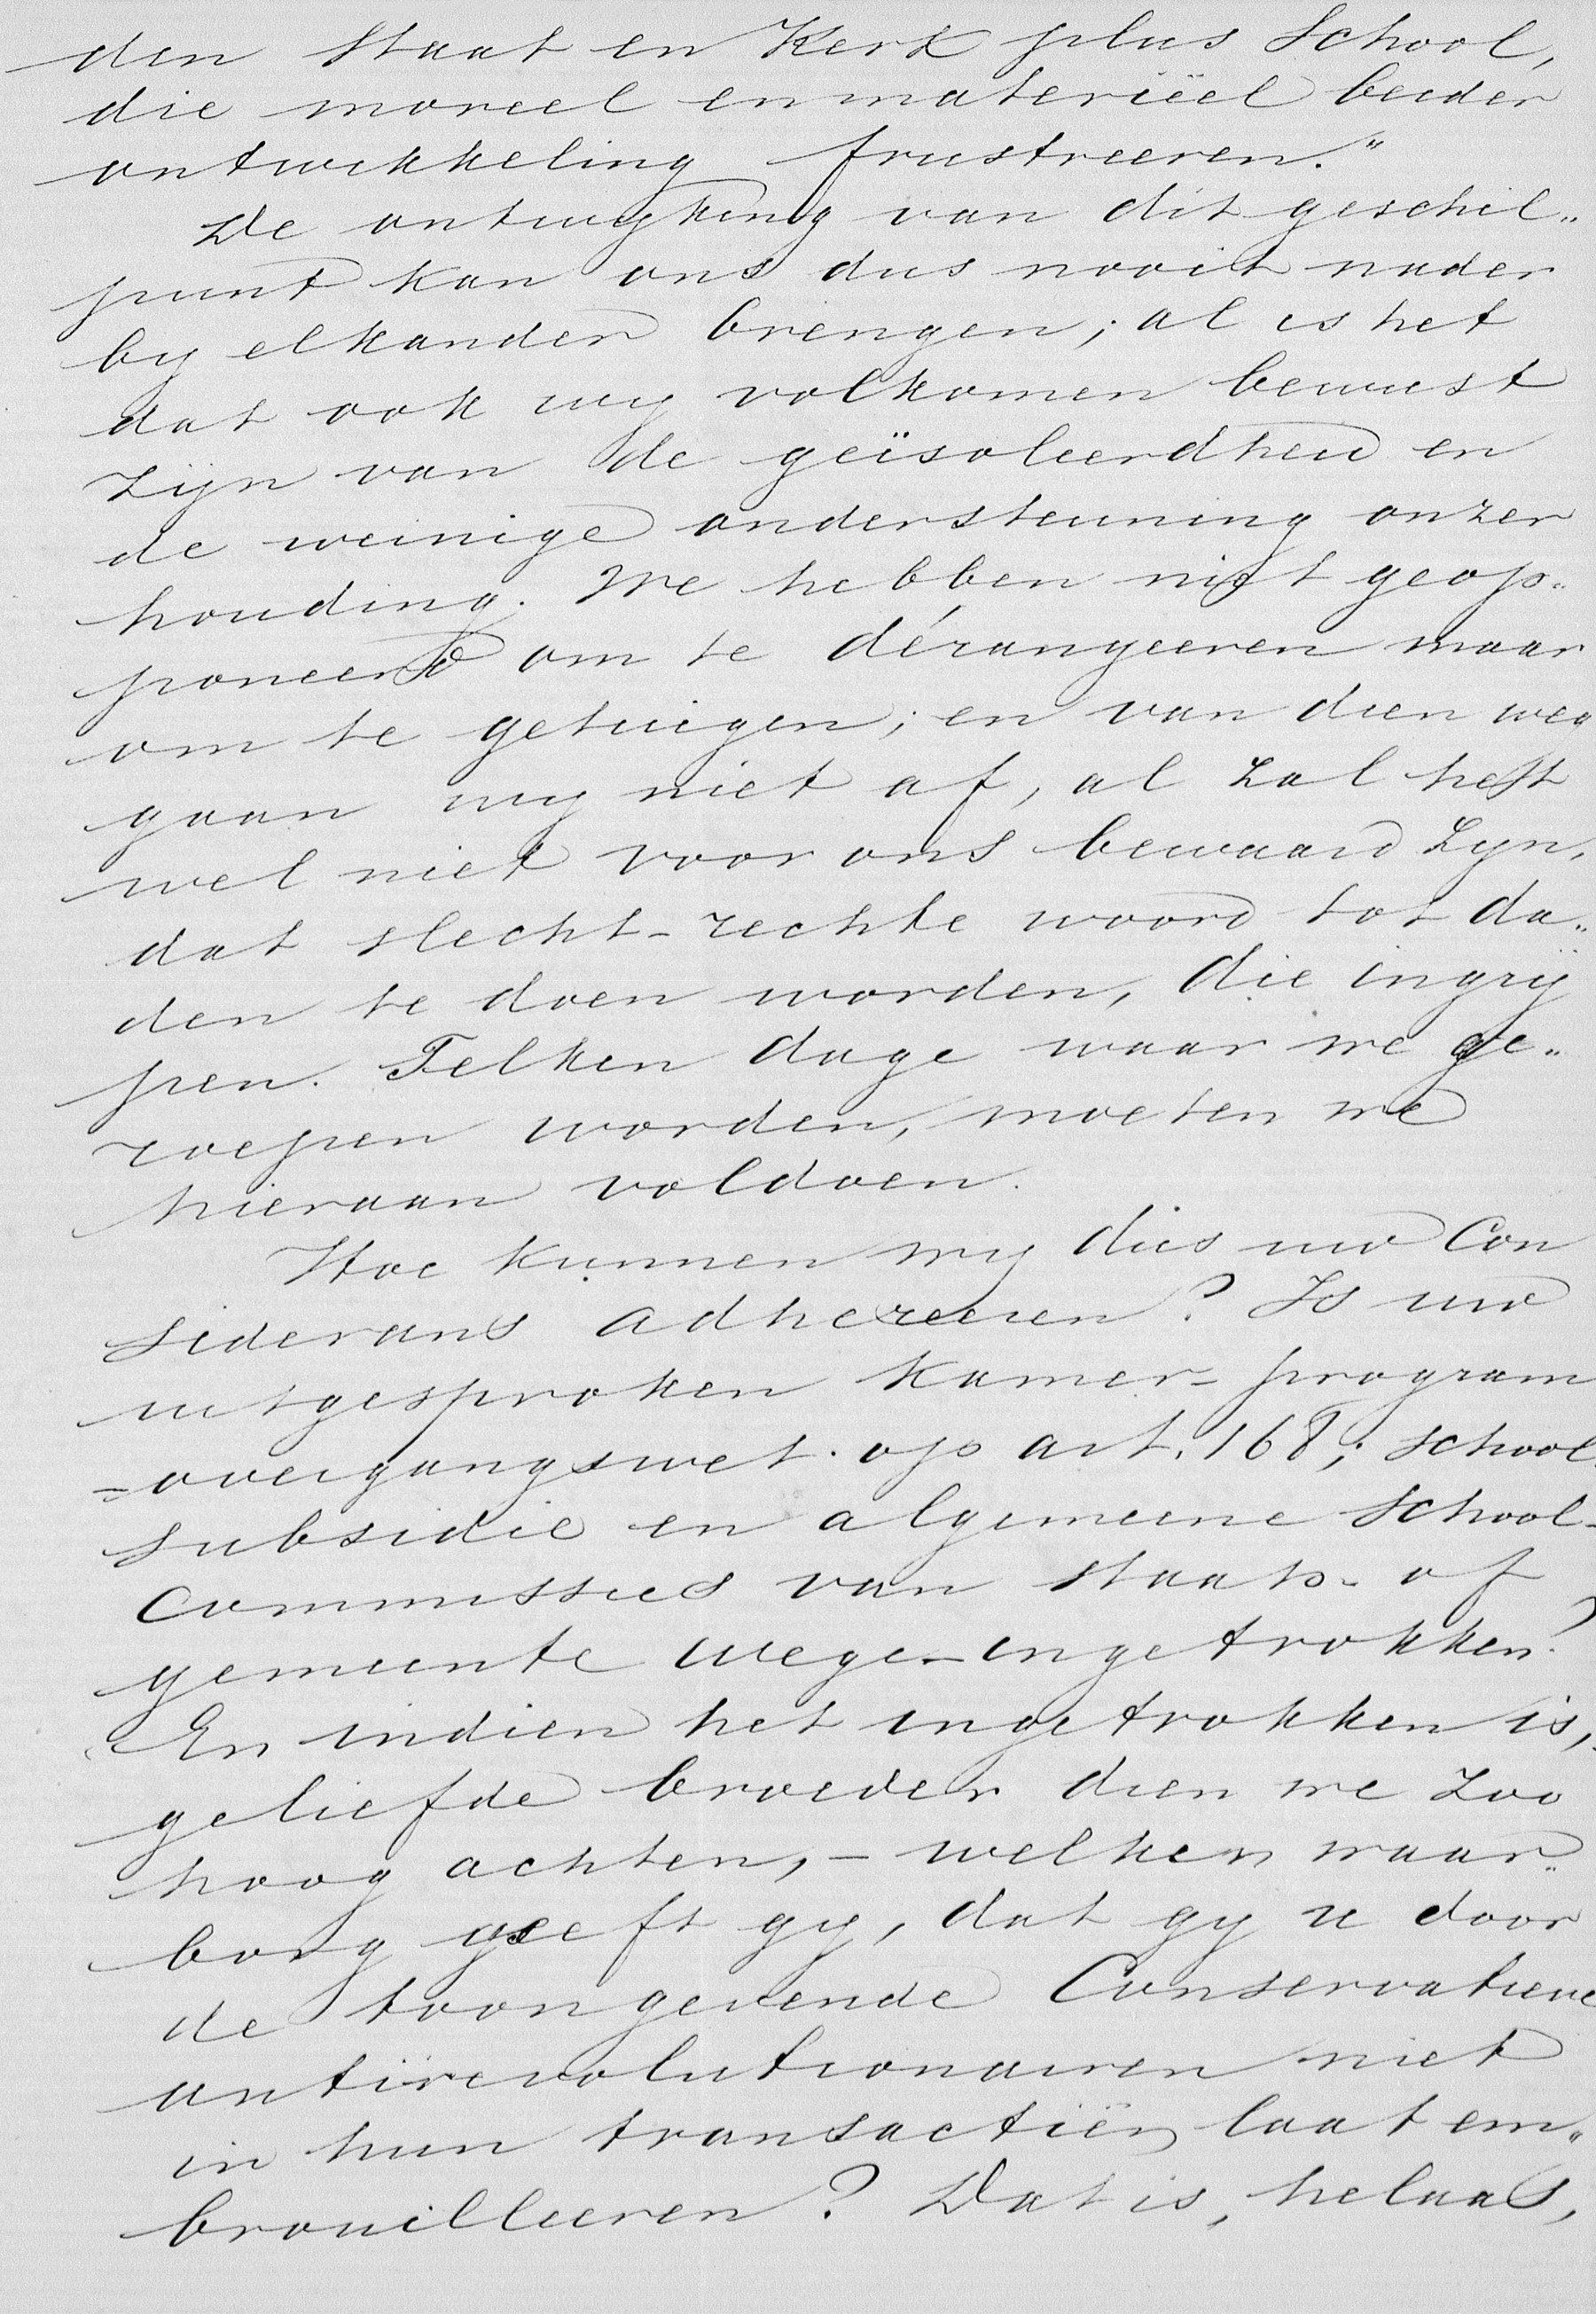 den Staat en Kerk plus School,
die moreel en materiëel beider
ontwikkeling frustreeren."
De ontwyking van dit geschil„
punt kan ons dus nooit nader
by elkander brengen; al is het
dat ook wy volkomen bewust
zijn van de geïsoleerdheid en
de weinige ondersteuning onzer
houding. We hebben niet geop„
poneerd om te dérangeeren maar
om te getuigen; en van dien weg
gaan wy niet af, al zal het
wel niet voor ons bewaard zyn,
dat slecht-rechte woord tot da„
den te doen worden, die ingrij
pen. Telken dage waar we ge„
roepen worden, moeten we
hieraan voldoen.
Hoe kunnen wy dus uw Con
siderans adhereeren? Is uw
uitgesproken Kamer-program
-overgangswet op art. 168; school
subsidie en algemeene School-
Commissies van staats- of
gemeente wege-ingetrokken?
En indien het ingetrokken is,
geliefde broeder dien we zoo
hoog achten, - welken waar„
borg geeft gy, dat gy u door
de toongevende Conservatieve
antirevolutionairen niet
in hun transactiën laat em„
brouilleeren? Dat is, helaas,